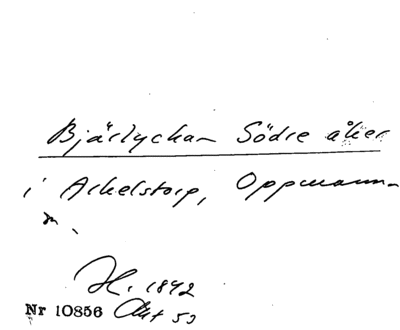 Bjärlyckan Södre åker
i Arkelstorp, Oppmanna
H. 1842
Nr 10856 Akt 50